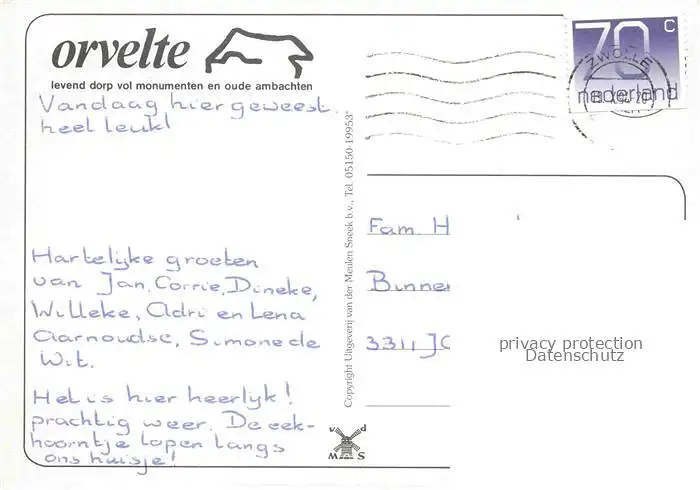 orvelte
levend dorp vol monumenten en oude ambachten
Vandaag hier geweest.
heel leuk!
Hartelijke groeten
van Jan, Corrie, Dineke,
Willeke, Adri en Lena
Aarnoudse, Simone de
Wit.
Het is hier heerlijk!
prachtig weer. De eek-
hoorntje lopen langs
ons huisje!
Copyright Uitgeverij van der Meulen Sneek b.v., Tel. 05150-19953*
v d
M S
70 c
nederland
ZWOLLE
Fam. H
Binne
3311 JC
privacy protection
Datenschutz